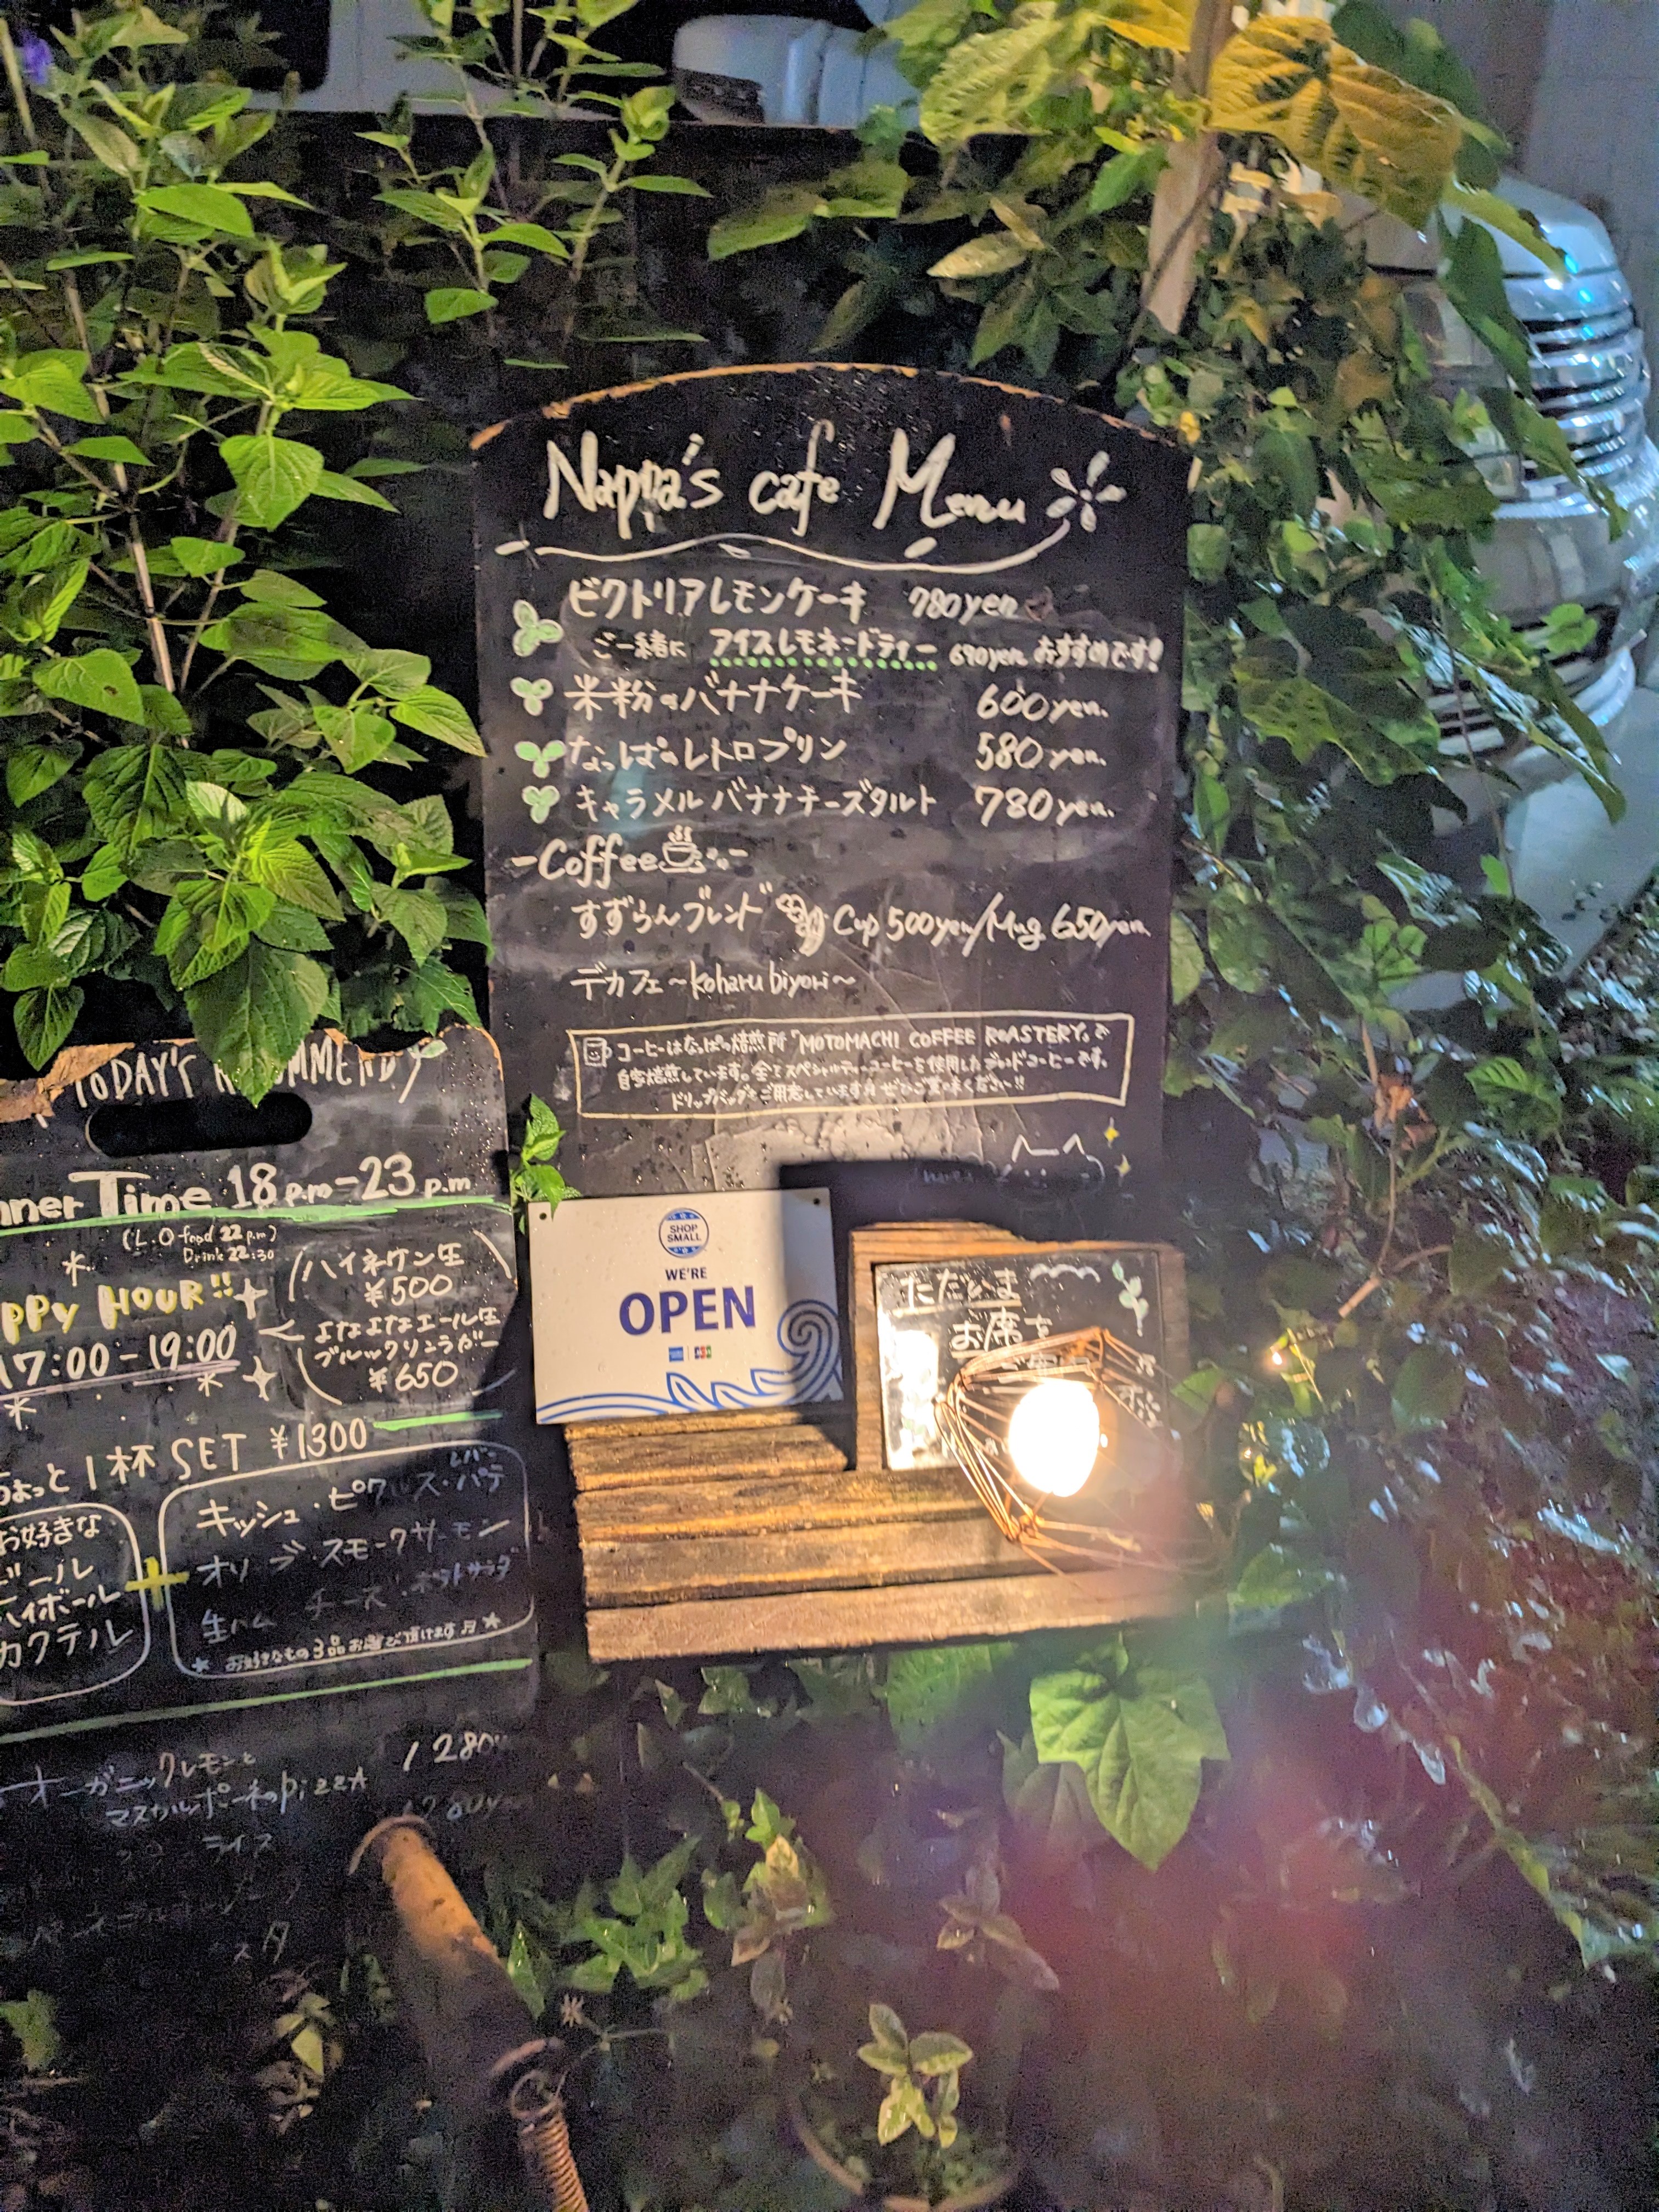 Nappa's cafe Menu
ビクトリアレモンケーキ 780yen
ご一緒に アイスレモネードティー 690yen おすすめです!
米粉のバナナケーキ 600yen.
なっぱのレトロプリン 580yen.
キャラメルバナナチーズタルト 780yen.
-Coffee-
すずらんブレンド Cup 500yen/Mug 650yen
デカフェ～koharu biyori～
コーヒーはなっぱの焙煎所「MOTOMACHI COFFEE ROASTERY」で
自家焙煎しています。全てスペシャルティーコーヒーを使用したコーヒーです。
ドリップバッグもご用意しています ぜひご賞味ください!!
SHOP
SMALL
WE'RE
OPEN
JCB
ただいま
お席を
TODAY'S
Time 18 p.m-23 p.m
(L.O food 22 p.m)
Drink 22:30
HOUR!!
17:00-19:00
ハイネケン生
¥500
よなよなエール生
ブルックリンラガー
¥650
ちょっと1杯 SET ¥1300
お好きな
ビール
ハイボール
カクテル
+
キッシュ・ピクルス・パテ
オリーブ・スモークサーモン
生ハム チーズ・ポテトサラダ
お好きなもの3品お選び頂けます
オーガニックレモンと
マスカルポーネのpizzA 1280
ライス